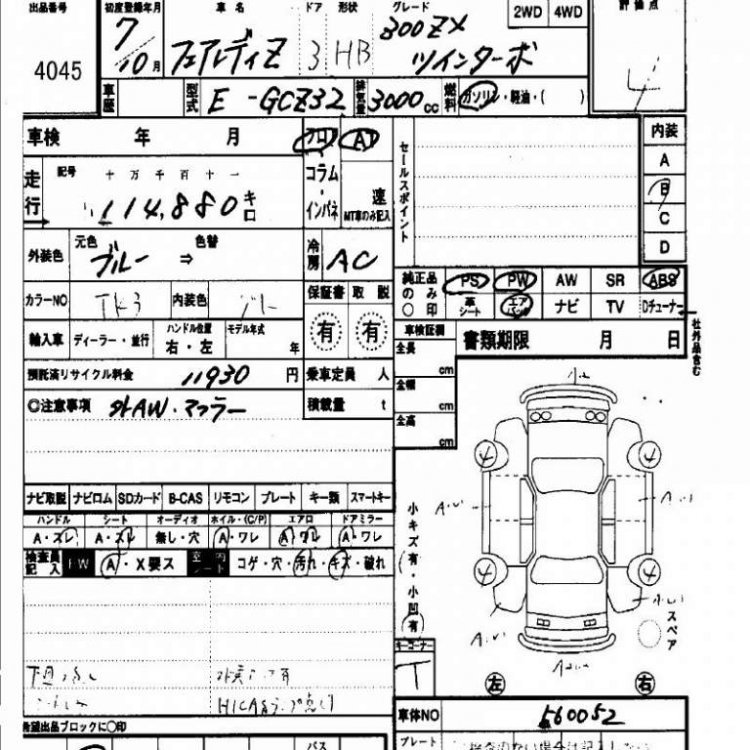 出品番号 初度登録年月 車名 ドア 形状 グレード 2WD 4WD 評価点
4045 7/10月 フェアレディZ 3 HB 300ZX ツインターボ 4
車歴 型式 E-GCZ32 排気量 3000cc 燃料 ガソリン・軽油・( )
車検 年 月 フロア AT セールスポイント 内装
A
B
C
D
走行 記号 十 万 千 百 十 一
114,880キロ
コラム・インパネ 速 MT車のみ記入
外装色 元色 ブルー ⇒ 色替 冷房 AC
純正品のみ○印 PS PW AW SR ABS
革シート エアバック ナビ TV Dチューナー
社外品含む
カラーNO TK3 内装色 グレー 保証書 取説
有 有
輸入車 ディーラー・並行 ハンドル位置 右・左 モデル年式 年
車検証欄 書類期限 月 日
全長 cm
全幅 cm
全高 cm
預託済リサイクル料金 11930円 乗車定員 人
◎注意事項 外AW・マフラー 積載量 t
ナビ取説 ナビロム SDカード B-CAS リモコン プレート キー類 スマートキー
ハンドル シート オーディオ ホイル・(C/P) エアロ ドアミラー
A・スレ A・スレ 無し・穴 A・ワレ A・ワレ A・ワレ
検査員記入 FW A・X要ス 室内シート コゲ・穴・汚れ・キズ・破れ
小キズ(有・小凹(有)
キーコーナー
T
4
4
4
4
スペア
左 右
下回
HICASランプ
車体NO 560052
希望出品ブロックに○印
バス
プレート